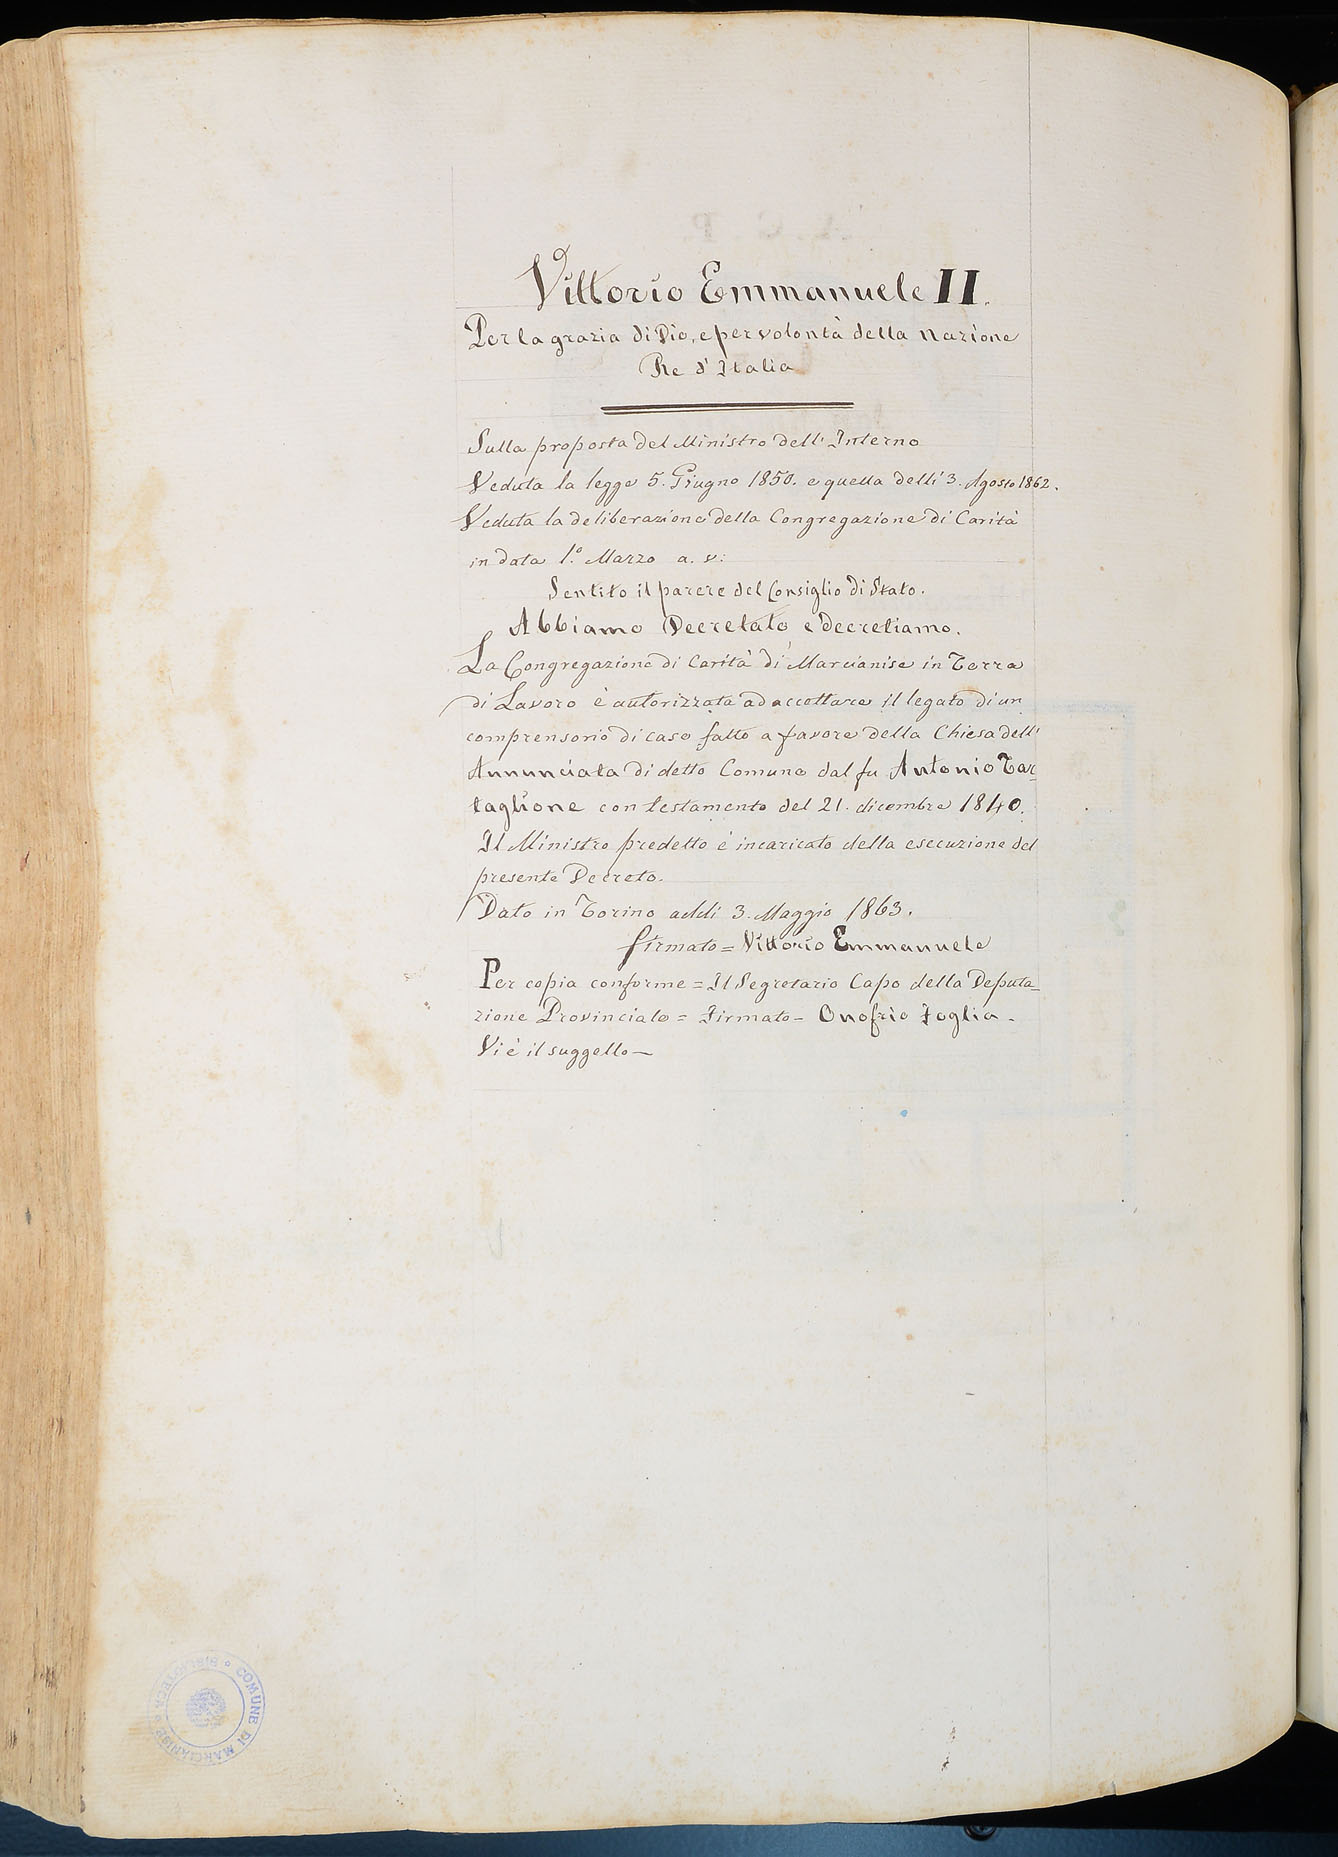 Vittorio Emmanuele II.
Per la grazia di Dio, e per volontà della Nazione
Re d'Italia
Sulla proposta del Ministro dell'Interno
Veduta la legge 5. Giugno 1850. e quella delli 3. Agosto 1862.
Veduta la deliberazione della Congregazione di Carità
in data 1.° Marzo a. v:
Sentito il parere del Consiglio di Stato.
Abbiamo Decretato e decretiamo.
La Congregazione di Carità di Marcianise in Terra
di Lavoro è autorizzata ad accettare il legato di un
comprensorio di case fatto a favore della Chiesa dell'
Annunciata di detto Comune dal fu Antonio Tar=
taglione con testamento del 21. dicembre 1840.
Il Ministro predetto è incaricato della esecuzione del
presente Decreto.
Dato in Torino addì 3. Maggio 1863.
firmato = Vittorio Emmanuele
Per copia conforme = Il Segretario Capo della Deputa=
zione Provinciale = Firmato = Onofrio Foglia.
Vi è il suggello —
BIBLIOTECA COMUNE DI MARCIANISE